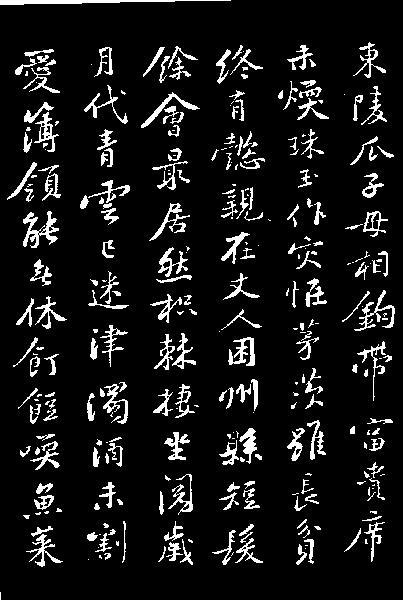 東陵瓜子母相鉤帶富貴席
未煖珠玉作灾恠茅茨雖長貧
終有懿親在丈人困州縣短髮
餘會最居然枳棘棲坐閱歲
月代青雲已迷津濁酒未割
愛簿領能无休飣餖喚魚菜